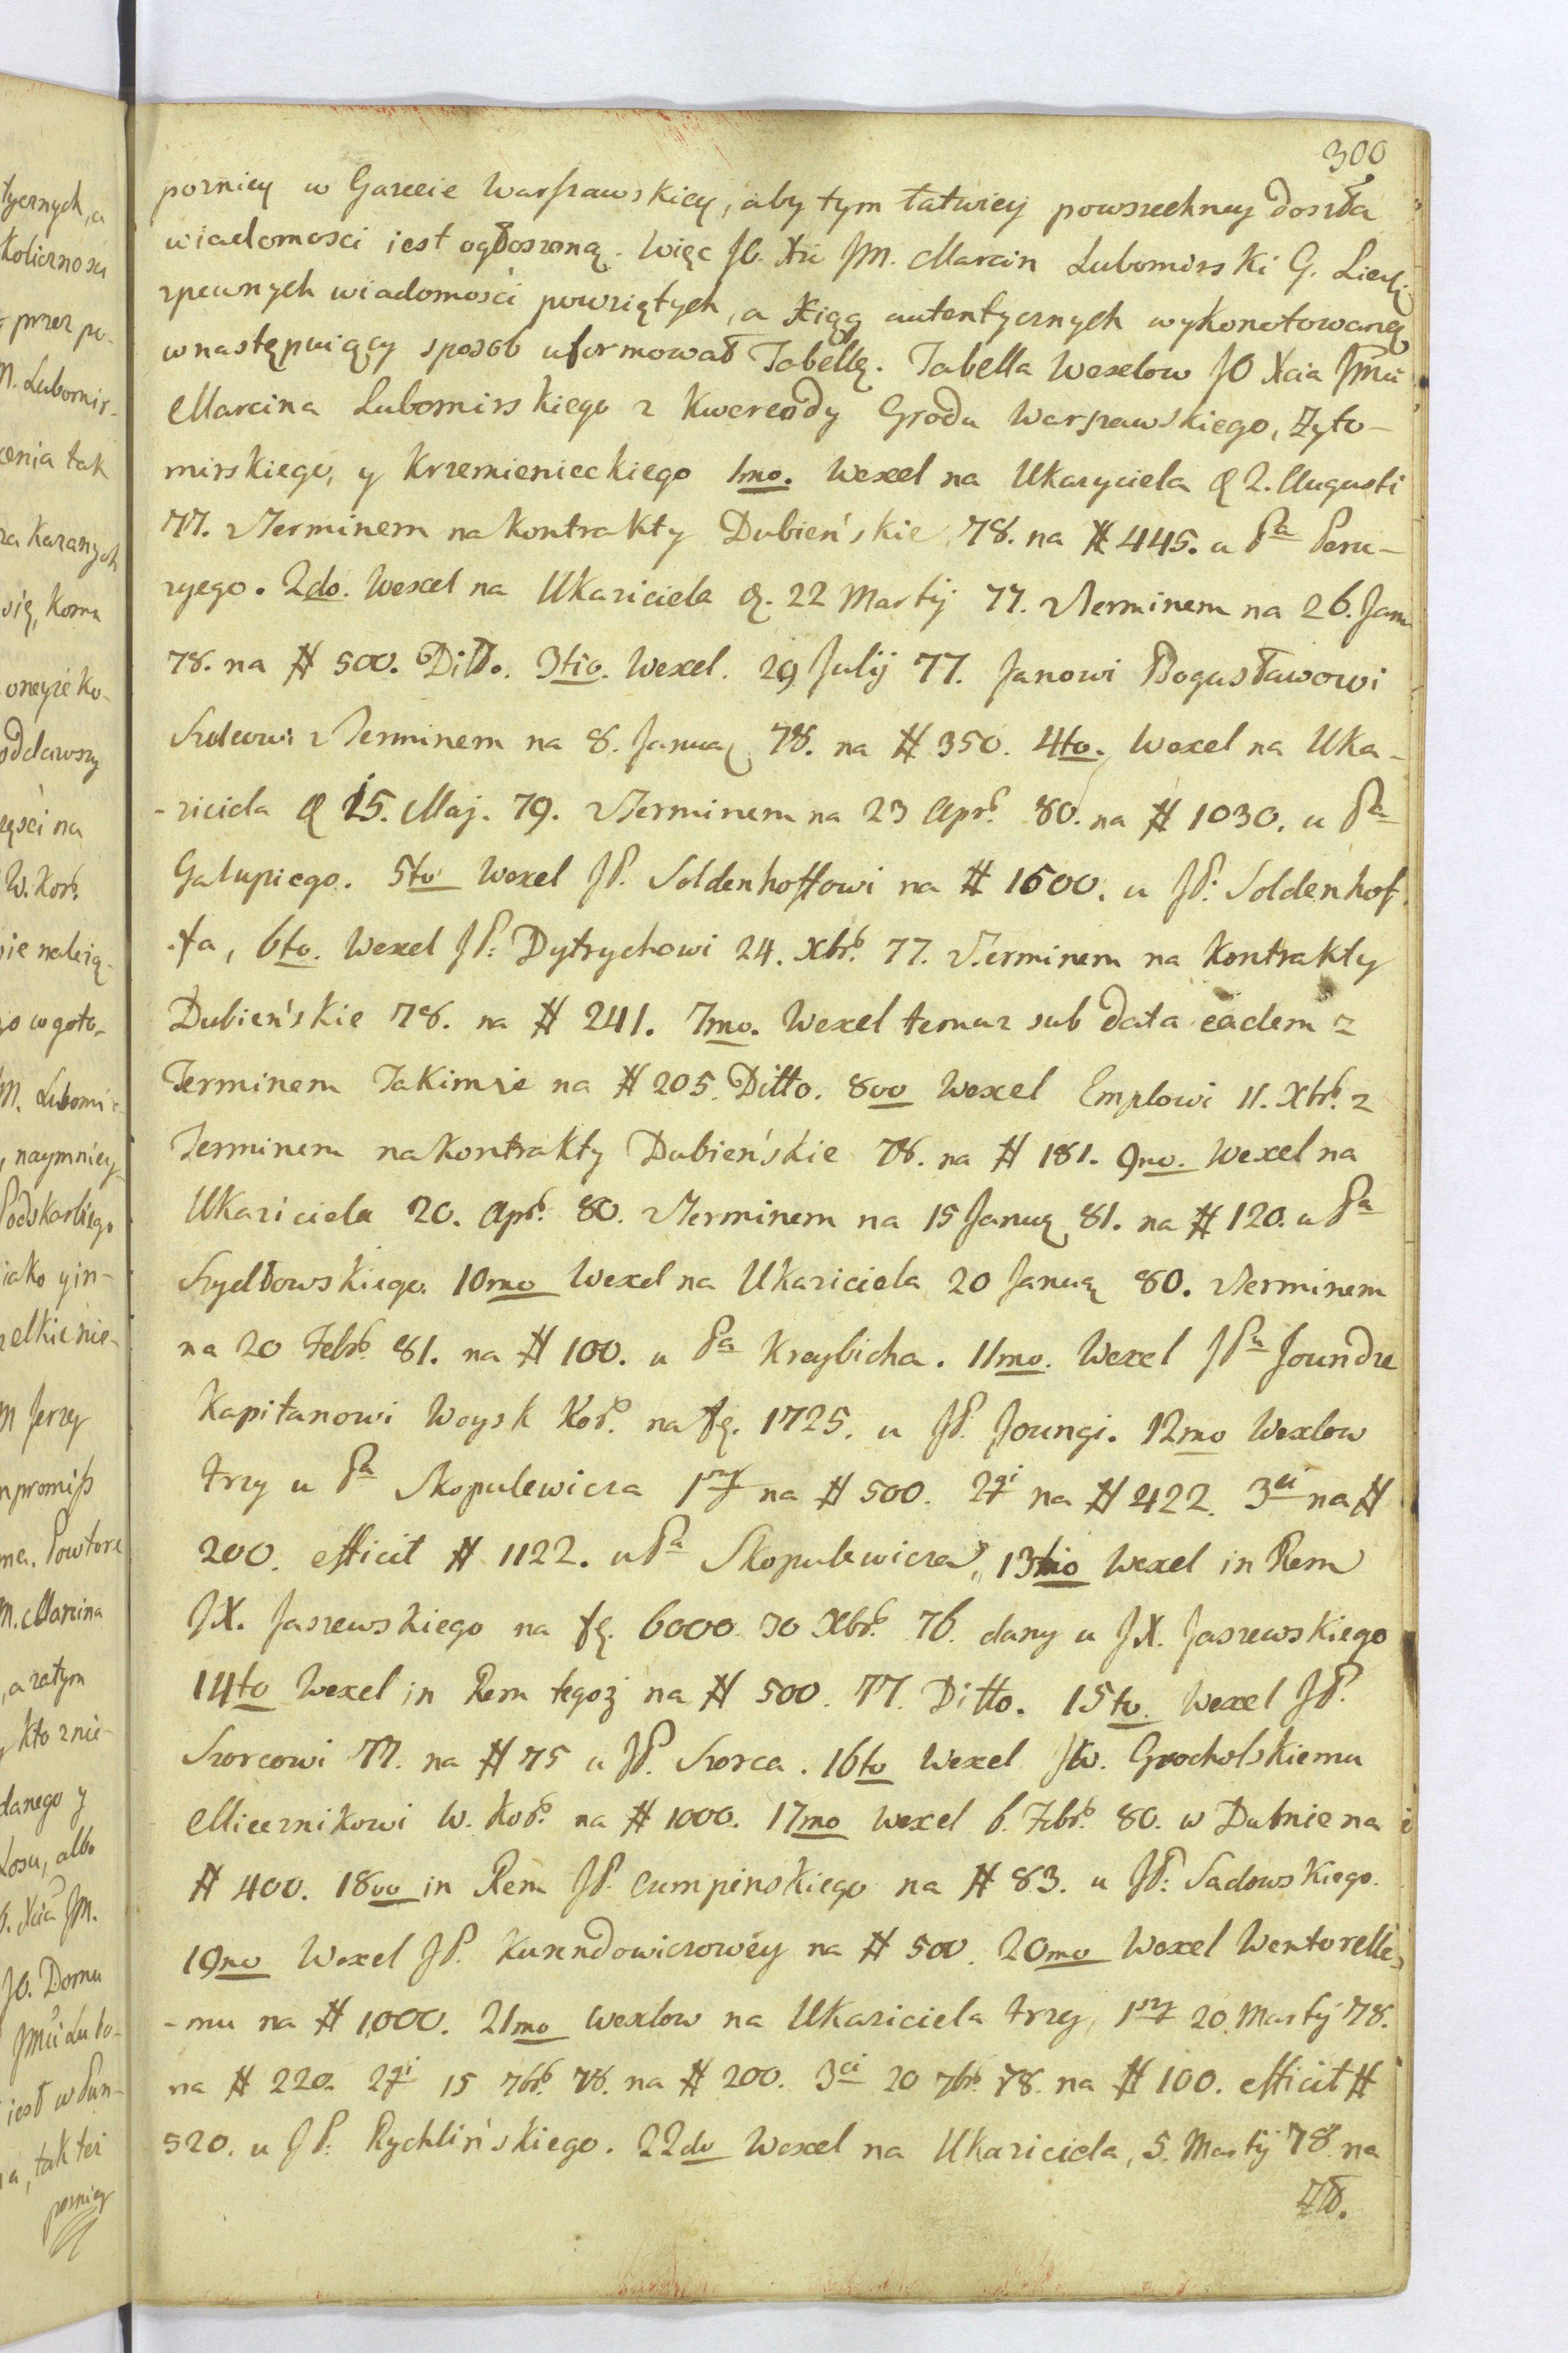 300
pozniey w Gazecie Warszawskiey, aby tym łatwiey powszechney doszła
wiadomosci iest ogłoszoną. Więc JO. Xże JM. Marcin Lubomirski G.
zpewnych wiadomości powziętych, a Xiąg autentycznych wykonotowaną
wnastępuiący sposob uformował Tabellę. Tabella Wexelow JO Xcia Jmci
Marcina Lubomirskiego z Kwerendy Grodu Warszawskiego, Zyto-
mirskiego, y Krzemienieckiego 1mo. Wexel na Ukazyciela d 2. Augusti
77. zTerminem na Kontrakty Dubieńskie 78. na # 445. u Pa Peru-
zyego. 2do. Wexel na Ukaziciela d. 22 Martij 77. zTerminem na 26. Janu
78. na # 500. Ditto. 3tio. Wexel. 29 Julij 77. Janowi Bogusławowi
Szulcowi zTerminem na 8. Januar 78. na # 350. 4to. Wexel na Uka-
-ziciela d 15. Maj. 79. zTerminem na 23 Apr. 80. na # 1030. u Pa
Galupiego. 5to Wexel JP. Soldenhoffowi na # 1600. u JP: Soldenhof-
-fa, 6to. Wexel JP: Dytrychowi 24. Xbr. 77. zTerminem na Kontrakty
Dubieńskie 78. na # 241. 7mo. Wexel temuz sub data eadem z
Terminem Takimże na # 205. Ditto. 8vo Wexel Emplowi 11. Xbr. z
Terminem na Kontrakty Dubieńskie 78. na # 181. 9no. Wexel na
Ukaziciela 20. Apr. 80. zTerminem na 15 Januar 81. na # 120. u Pa
Szydłowskiego. 10mo Wexel na Ukaziciela 20 Januar 80. zTerminem
na 20 Febr. 81. na # 100. u Pa Kreybicha. 11mo. Wexel JPu Joundze
Kapitanowi Woysk Kor. na fl. 1725. u JP. Joungi. 12mo Wexlow
trzy u Pa Skopulewicza 1szy na # 500. 2gi na # 422. 3ci na #
200. efficit # 1122. u Pa Skopulewicza, 13tio Wexel in Rem
JX. Jaszewskiego na fl. 6000. 30 Xbr. 76. dany u JX. Jaszewskiego
14to Wexel in Rem tegoż na # 500. 77. Ditto. 15to. Wexel JP.
Szorcowi 77. na # 75 u JP. Szorca. 16to Wexel JW. Grocholskiemu
Miecznikowi W. Kor. na # 1000. 17mo Wexel 6. Febr. 80. w Dubnie na
# 400. 18vo in Rem JP. Czumpinskiego na # 83. u JP: Sadowskiego.
19no Wexel JP. Kunendowiczowéy na # 500. 20mo Wexel Wentorelle-
-mu na # 1,000. 21mo Wexlow na Ukaziciela trzy, 1szy 20. Martij 78.
na # 220. 2gi 15 7br. 78. na # 200. 3ci 20 7br. 78. na # 100. efficit #
520. u JP: Rychlińskiego. 22do Wexel na Ukaziciela, 5. Martij 78. na
Zł.